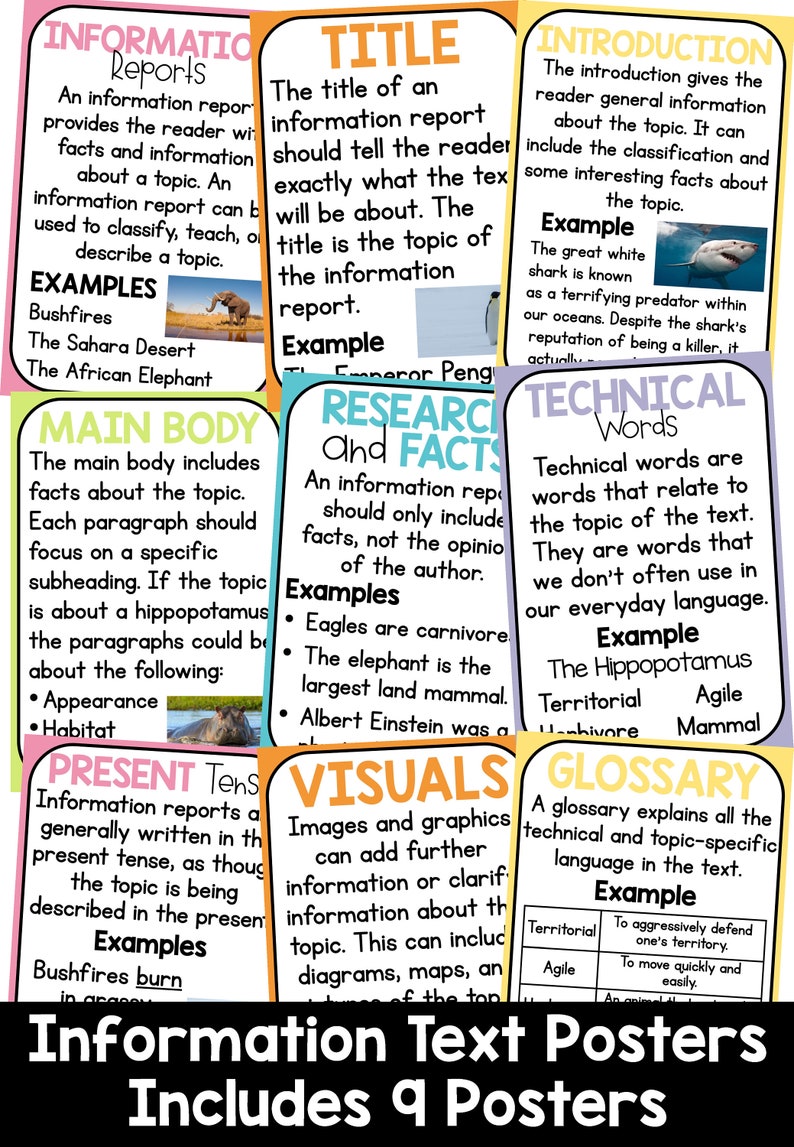 INFORMATIO
Reports
An information report
provides the reader wi
facts and information
about a topic. An
information report can b
used to classify, teach, or
describe a topic.
EXAMPLES
Bushfires
The Sahara Desert
The African Elephant
TITLE
The title of an
information report
should tell the reader
exactly what the tex
will be about. The
title is the topic of
the information
report.
Example
The Emperor Pengu
INTRODUCTION
The introduction gives the
reader general information
about the topic. It can
include the classification and
some interesting facts about
the topic.
Example
The great white
shark is known
as a terrifying predator within
our oceans. Despite the shark's
reputation of being a killer, it
actually
MAIN BODY
The main body includes
facts about the topic.
Each paragraph should
focus on a specific
subheading. If the topic
is about a hippopotamus
the paragraphs could be
about the following:
• Appearance
• Habitat
RESEARCH
and FACTS
An information repo
should only include
facts, not the opinio
of the author.
Examples
• Eagles are carnivore
• The elephant is the
largest land mammal.
• Albert Einstein was a
TECHNICAL
Words
Technical words are
words that relate to
the topic of the text.
They are words that
we don't often use in
our everyday language.
Example
The Hippopotamus
Territorial Agile
Herbivore Mammal
PRESENT Tens
Information reports a
generally written in th
present tense, as thoug
the topic is being
described in the present
Examples
Bushfires burn
in grassy
VISUALS
Images and graphics
can add further
information or clarif
information about th
topic. This can includ
diagrams, maps, an
pictures of the top
GLOSSARY
A glossary explains all the
technical and topic-specific
language in the text.
Example
Territorial To aggressively defend
one's territory.
Agile To move quickly and
easily.
An animal that
Information Text Posters
Includes 9 Posters